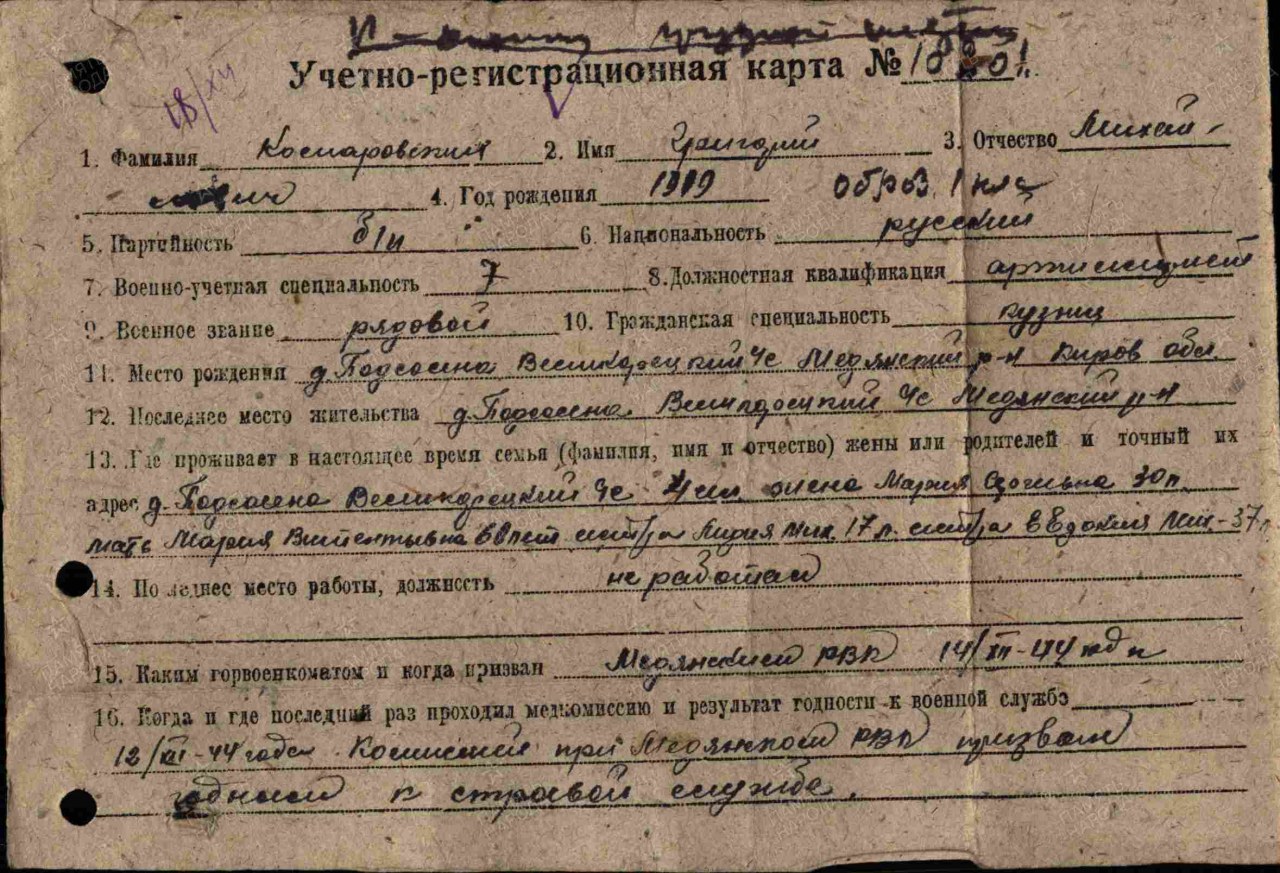 Учетно-регистрационная карта № 10801.
18/XII
1. Фамилия Комаровский 2. Имя Григорий 3. Отчество Михай-
лович 4. Год рождения 1919 образ. 1 клас
5. Партийность б/п 6. Национальность русский
7. Военно-учетная специальность 7 8. Должностная квалификация артиллерист
9. Военное звание рядовой 10. Гражданская специальность кузнец
11. Место рождения д. Подсосена Великорецкий с/с Медянский р-н Киров обл
12. Последнее место жительства д. Подсосена Великорецкий с/с Медянский р-н
13. Где проживает в настоящее время семья (фамилия, имя и отчество) жены или родителей и точный их
адрес д. Подсосена Великорецкий с/с жена Мария 30 л.
мать Мария сестра Лидия Мих. 17 л. сестра Евдокия Мих - 37 л
14. Последнее место работы, должность не работал
15. Каким горвоенкоматом и когда призван Медянским РВК 14/XII-44 года
16. Когда и где последний раз проходил медкомиссию и результат годности к военной службе
12/XII-44 года Комиссией при Медянском РВК призван
годным к строевой службе.